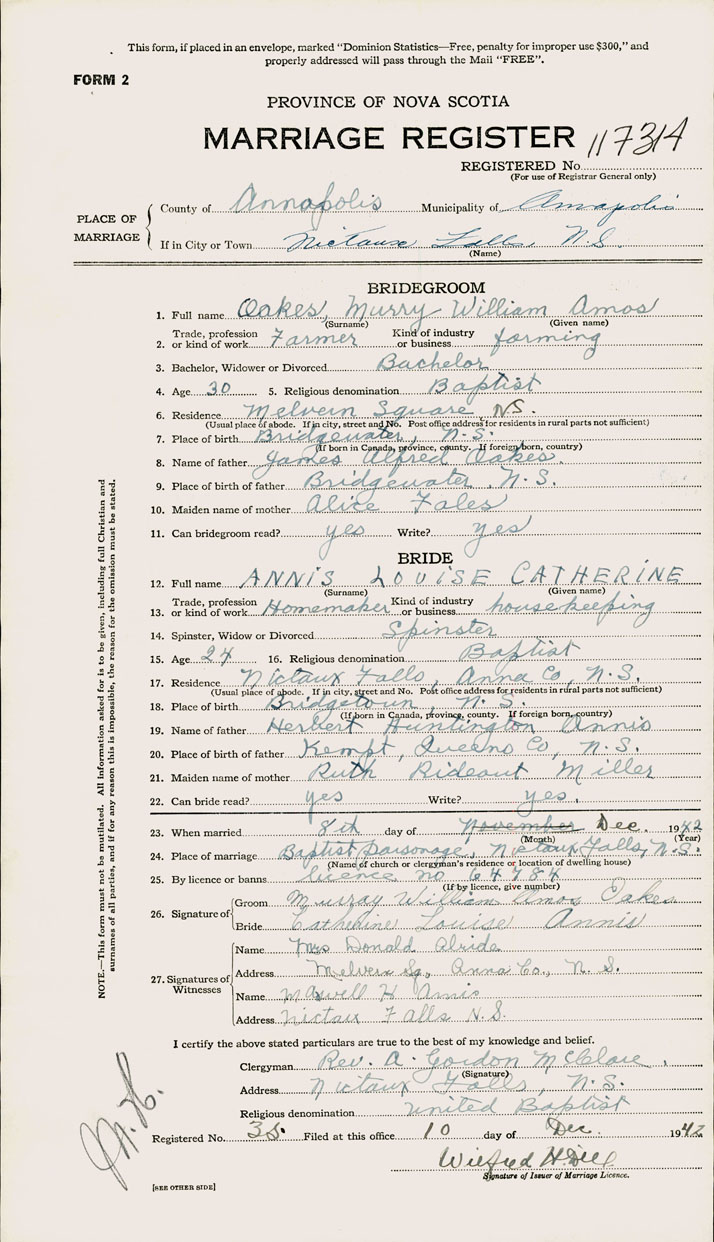 This form, if placed in an envelope, marked "Dominion Statistics—Free, penalty for improper use $300," and
properly addressed will pass through the Mail "FREE".
FORM 2
PROVINCE OF NOVA SCOTIA
MARRIAGE REGISTER 117314
REGISTERED No.
(For use of Registrar General only)
PLACE OF MARRIAGE
County of Annapolis Municipality of Annapolis
If in City or Town Nictaux Falls, N.S.
(Name)
BRIDEGROOM
1. Full name Oakes, Murry William Amos
(Surname) (Given name)
2. Trade, profession or kind of work Farmer Kind of industry or business farming
3. Bachelor, Widower or Divorced Bachelor
4. Age 30 5. Religious denomination Baptist
6. Residence Melvern Square N.S.
(Usual place of abode. If in city, street and No. Post office address for residents in rural parts not sufficient)
7. Place of birth Bridgewater, N.S.
(If born in Canada, province, county. If foreign born, country)
8. Name of father James Alfred Oakes.
9. Place of birth of father Bridgewater, N.S.
10. Maiden name of mother Alice Fales
11. Can bridegroom read? yes Write? yes
BRIDE
12. Full name ANNIS LOUISE CATHERINE
(Surname) (Given name)
13. Trade, profession or kind of work Homemaker Kind of industry or business housekeeping
14. Spinster, Widow or Divorced Spinster
15. Age 24 16. Religious denomination Baptist
17. Residence Nictaux Falls, Anna Co, N.S.
(Usual place of abode. If in city, street and No. Post office address for residents in rural parts not sufficient)
18. Place of birth Bridgetown, N.S.
(If born in Canada, province, county. If foreign born, country)
19. Name of father Herbert Huntington Annis
20. Place of birth of father Kempt, Queens Co, N.S.
21. Maiden name of mother Ruth Rideout Miller
22. Can bride read? yes Write? yes.
23. When married 8th day of November Dec. 1942
(Month) (Year)
24. Place of marriage Baptist Parsonage, Nictaux Falls, N.S.
(Name of church or clergyman's residence or location of dwelling house)
25. By licence or banns licence no 64784
(If by licence, give number)
26. Signature of
Groom Murray William Amos Oakes
Bride Catherine Louise Annis
27. Signatures of Witnesses
Name Mrs Donald
Address Melvern Sq., Anna Co., N.S.
Name Maxwell H Annis
Address Nictaux Falls N.S.
I certify the above stated particulars are true to the best of my knowledge and belief.
Clergyman Rev. A. Gordon McClare.
(Signature)
Address Nictaux Falls, N.S.
Religious denomination United Baptist
Registered No. 35 Filed at this office 10 day of Dec. 1942
Wilfred H.
Signature of Issuer of Marriage Licence.
[SEE OTHER SIDE]
NOTE.—This form must not be mutilated. All Information asked for is to be given, including full Christian and
surnames of all parties, and if for any reason this is impossible, the reason for the omission must be stated.